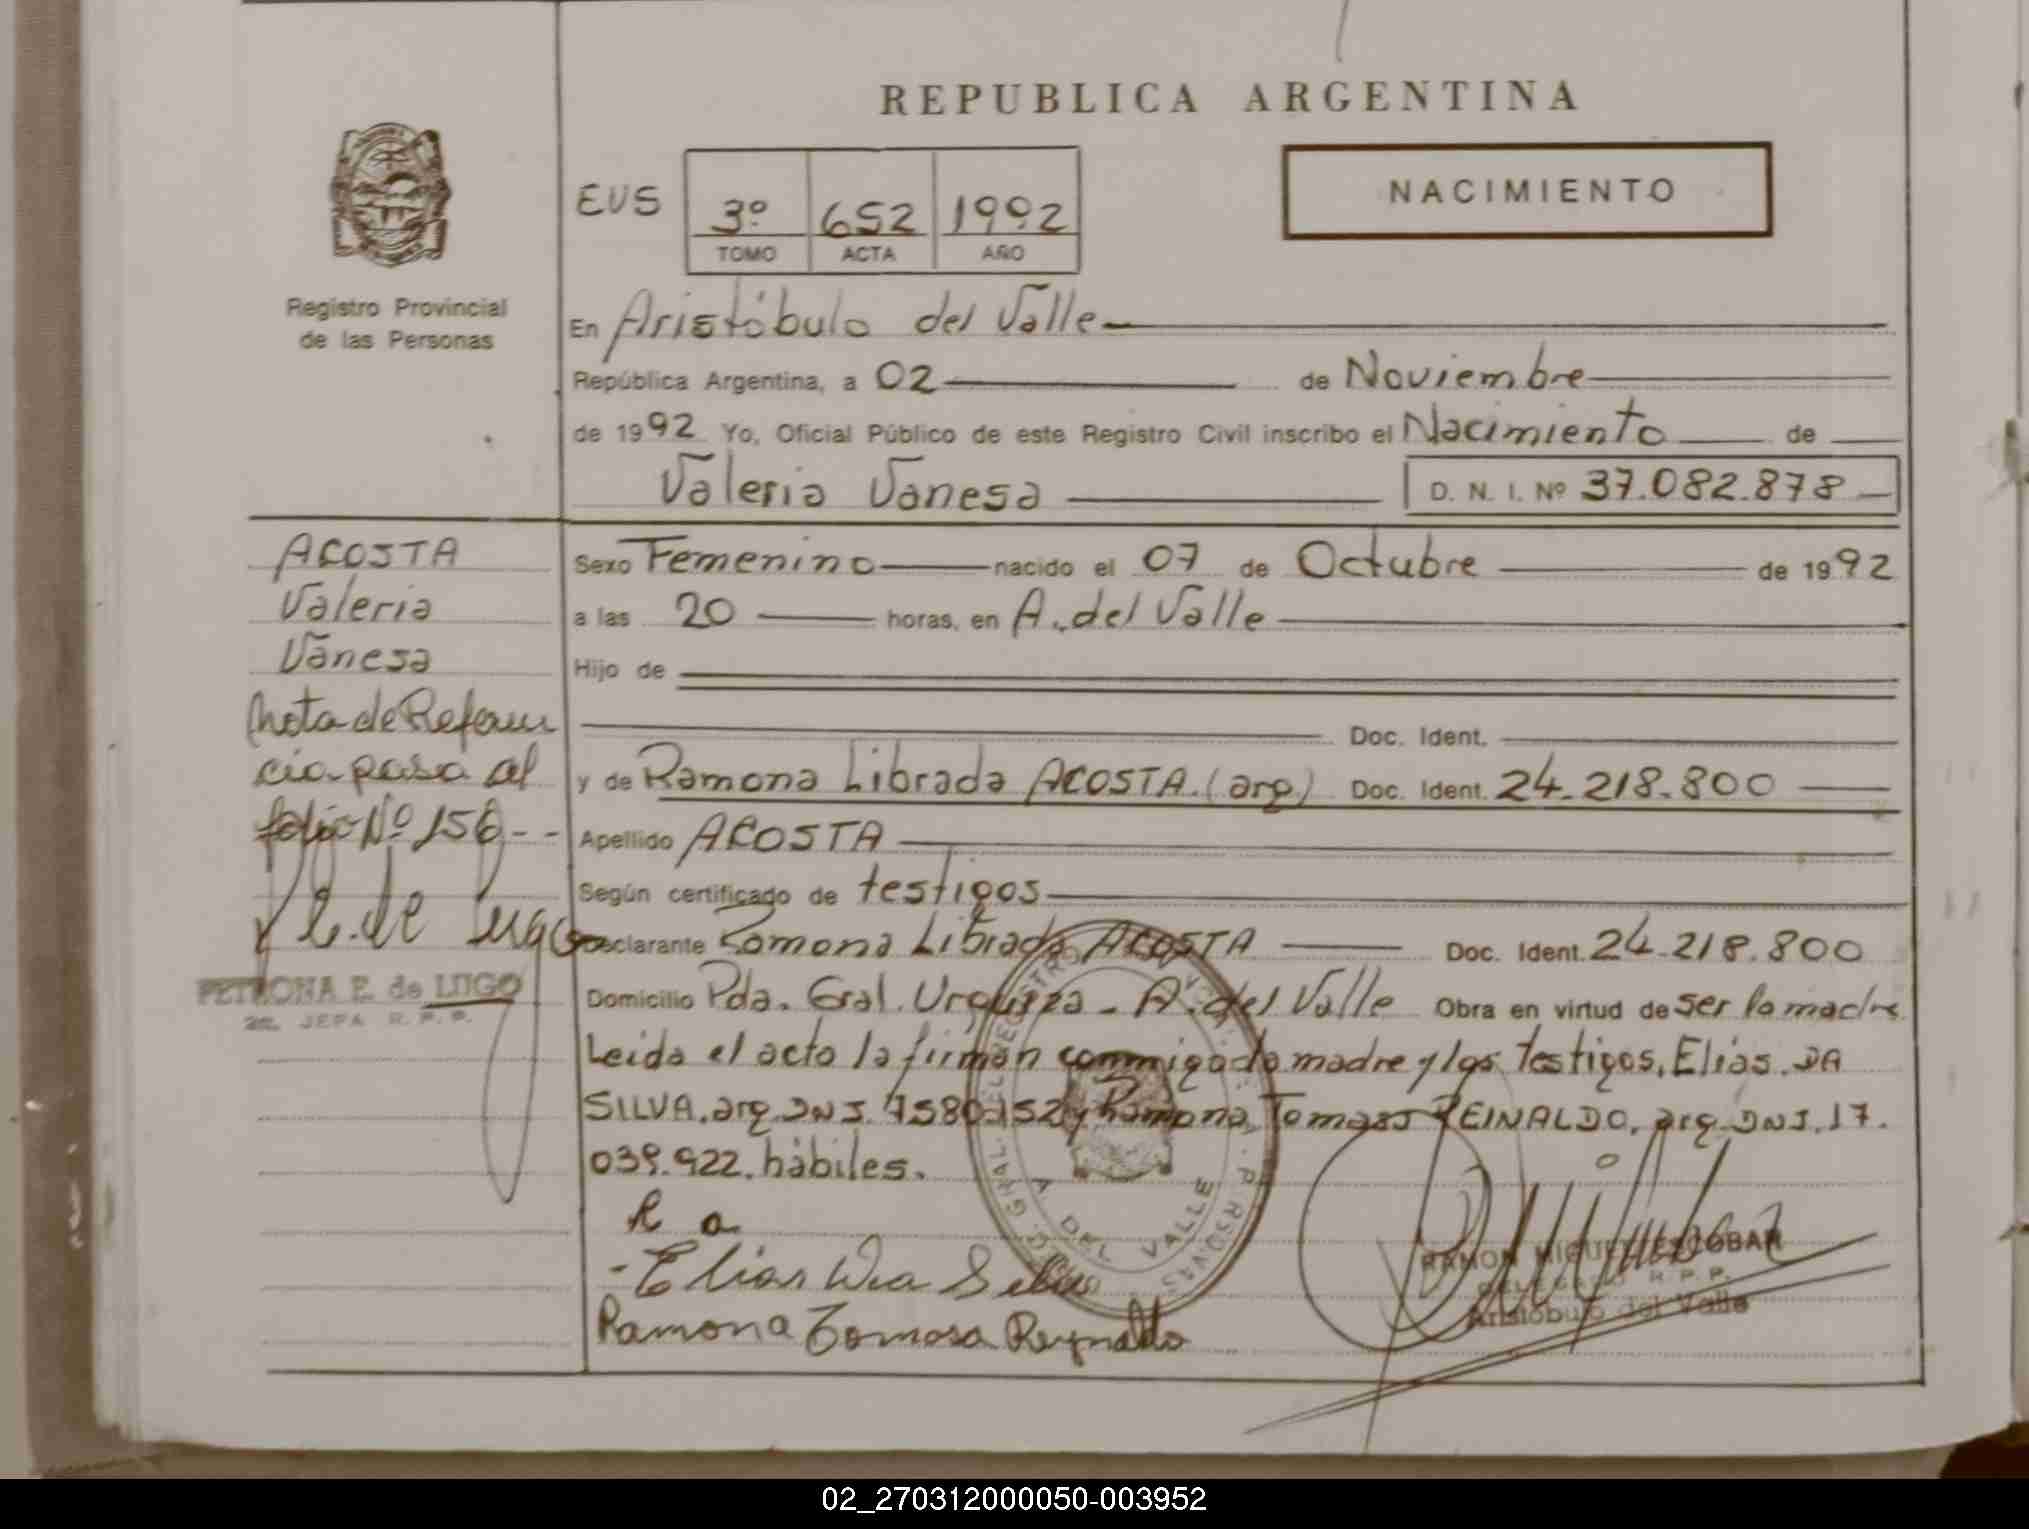 REPUBLICA ARGENTINA
NACIMIENTO
EVS
3º 652 1992
TOMO ACTA AÑO
Registro Provincial
de las Personas
En Aristóbulo del Valle
República Argentina, a 02 de Noviembre
de 1992 Yo, Oficial Público de este Registro Civil inscribo el Nacimiento de
Valeria Vanesa D. N. I. Nº 37.082.878
ACOSTA
Valeria
Vanesa
Nota de Referen
cia pasa al
folio Nº 156 --
PETRONA E. de LUGO
2a. JEFA R. P. P.
Sexo Femenino nacido el 07 de Octubre de 1992
a las 20 horas, en A. del Valle
Hijo de
Doc. Ident.
y de Ramona Librada ACOSTA. (arg) Doc. Ident. 24-218-800
Apellido ACOSTA
Según certificado de testigos
Declarante Ramona Librada ACOSTA Doc. Ident. 24-218.800
Domicilio Pda. Gral. Urquiza - A. del Valle Obra en virtud de ser la madre
Leida el acta la firman conmigo la madre y los testigos, Elias DA
SILVA. arg. DNI. 7580152 y Ramona Tomasa REINALDO, arg. DNI. 17.
039.922. hábiles.
R a
- Elias Da Silva
Ramona Tomasa Reynaldo
A DEL VALLE
RAMON MIGUEL ESCOBAR
DELEGADO R. P. P.
Aristóbulo del Valle
02_270312000050-003952